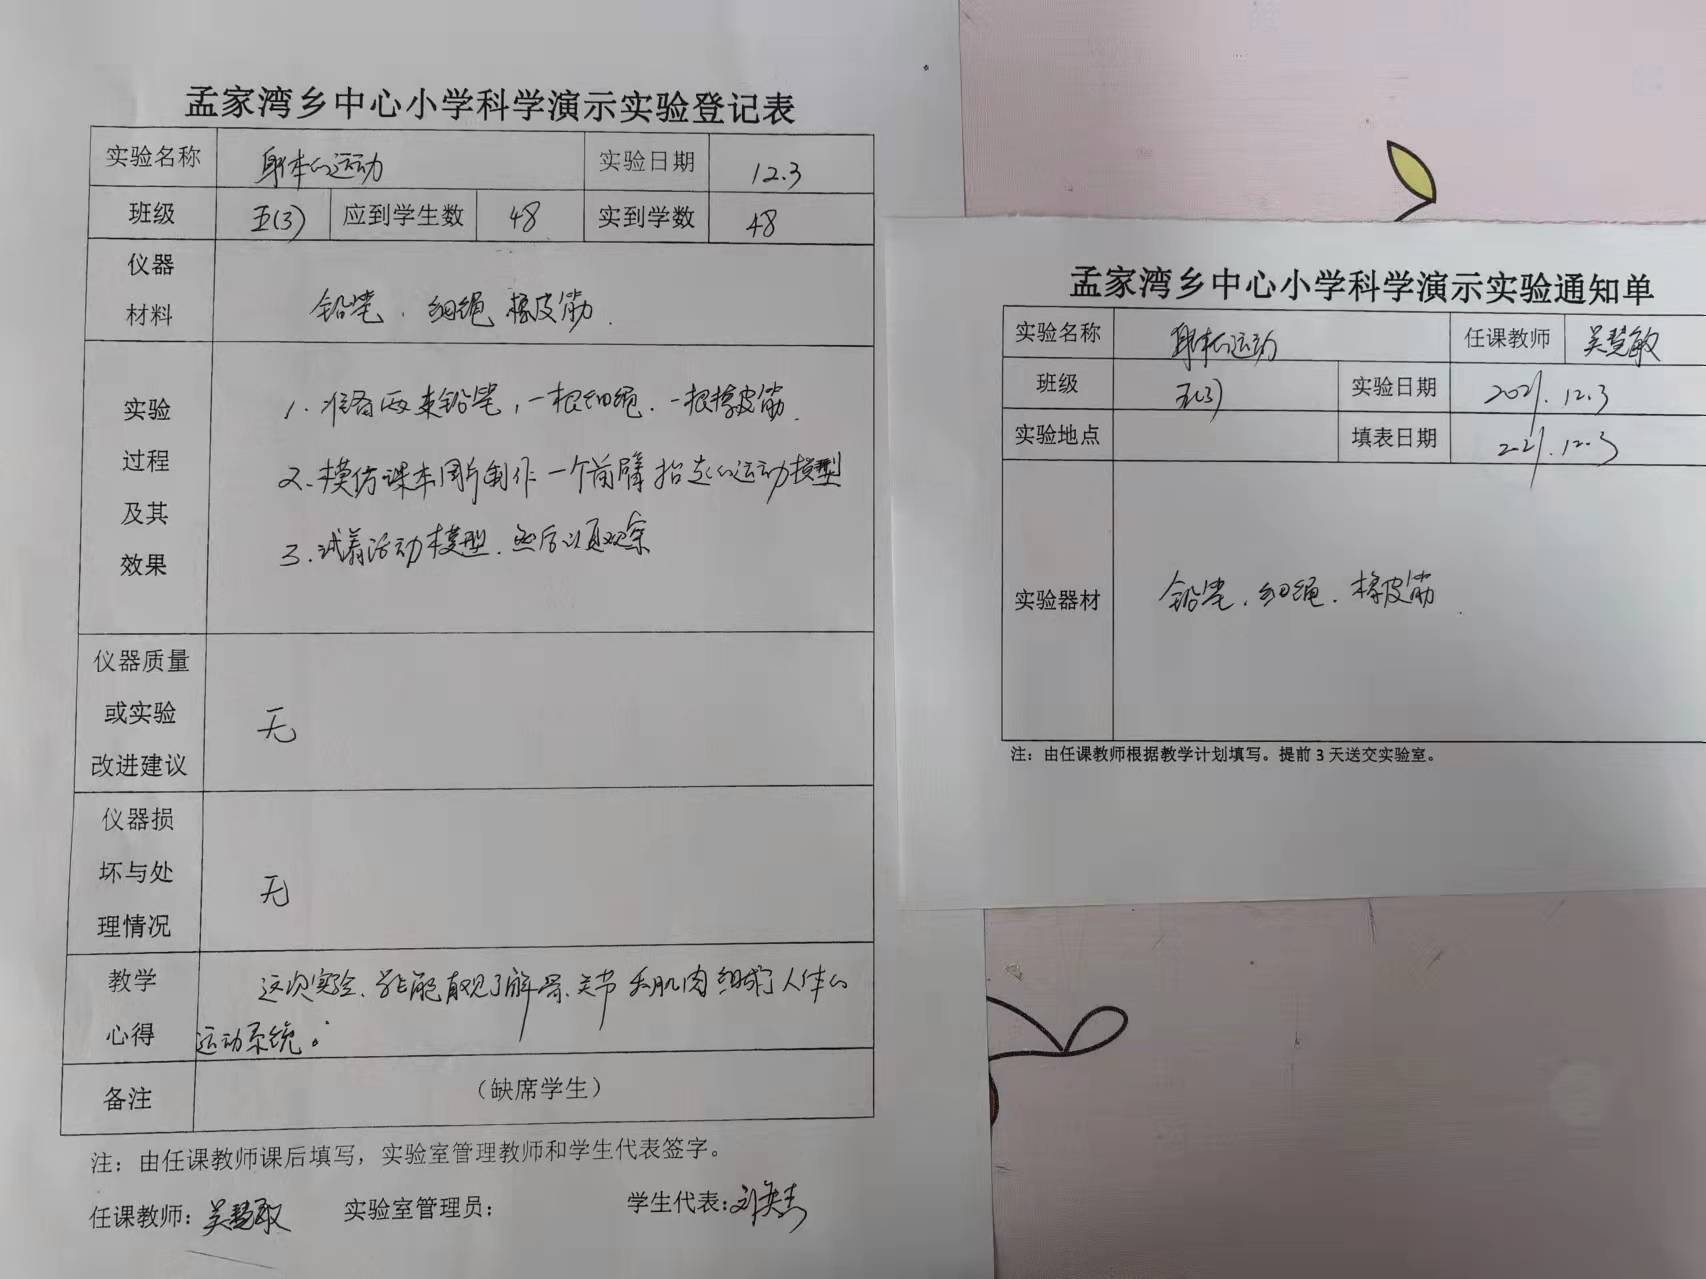 孟家湾乡中心小学科学演示实验登记表
实验名称 身体的运动 实验日期 12.3
班级 五(3) 应到学生数 48 实到学数 48
仪器
材料
铅笔、细绳 橡皮筋.
实验
过程
及其
效果
1. 准备两支铅笔,一根细绳.一根橡皮筋.
2.模仿课本图片制作一个前臂抬起的运动模型
3.试着活动模型.然后认真观察
仪器质量
或实验
改进建议
无
仪器损
坏与处
理情况
无
教学
心得
这次实验、能直观了解骨、关节和肌肉组成了人体的
运动系统。
备注 (缺席学生)
注:由任课教师课后填写,实验室管理教师和学生代表签字。
任课教师:吴慧敏 实验室管理员: 学生代表:
孟家湾乡中心小学科学演示实验通知单
实验名称 身体的运动 任课教师 吴慧敏
班级 五(3) 实验日期 2021.12.3
实验地点 填表日期 2021.12.3
实验器材 铅笔、细绳.橡皮筋.
注:由任课教师根据教学计划填写。提前3天送交实验室。